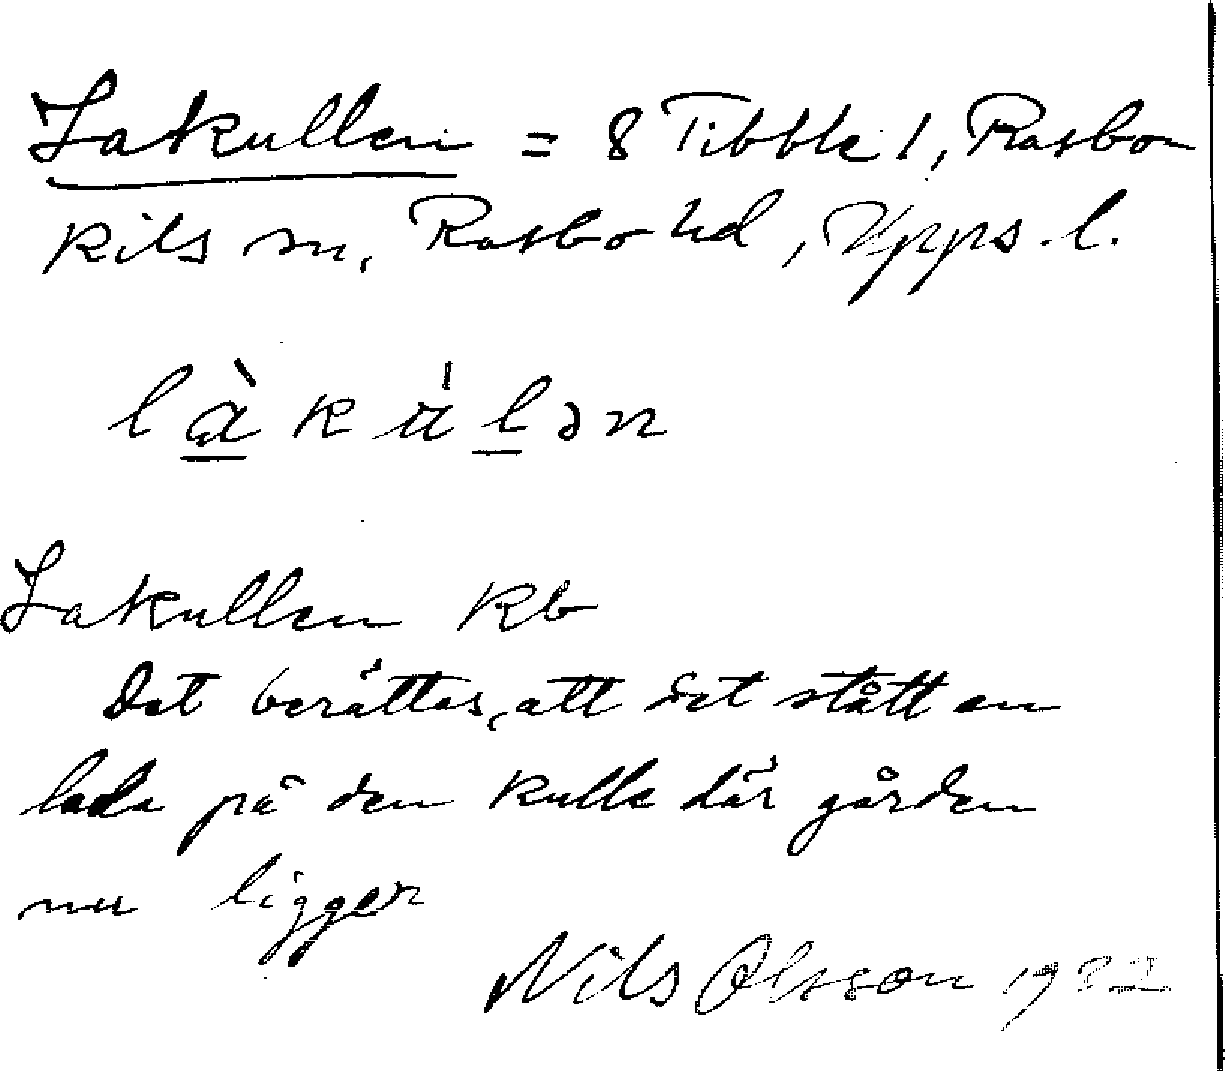 Lakullen = 8 Tibble 1, Rasbo
kils sn, Rasbo hd, Upps. l.
làku̍lən
Lakullen kb
Det berättas, att det stått en
lada på den kulle där gården
nu ligger
Nils Olsson 1982